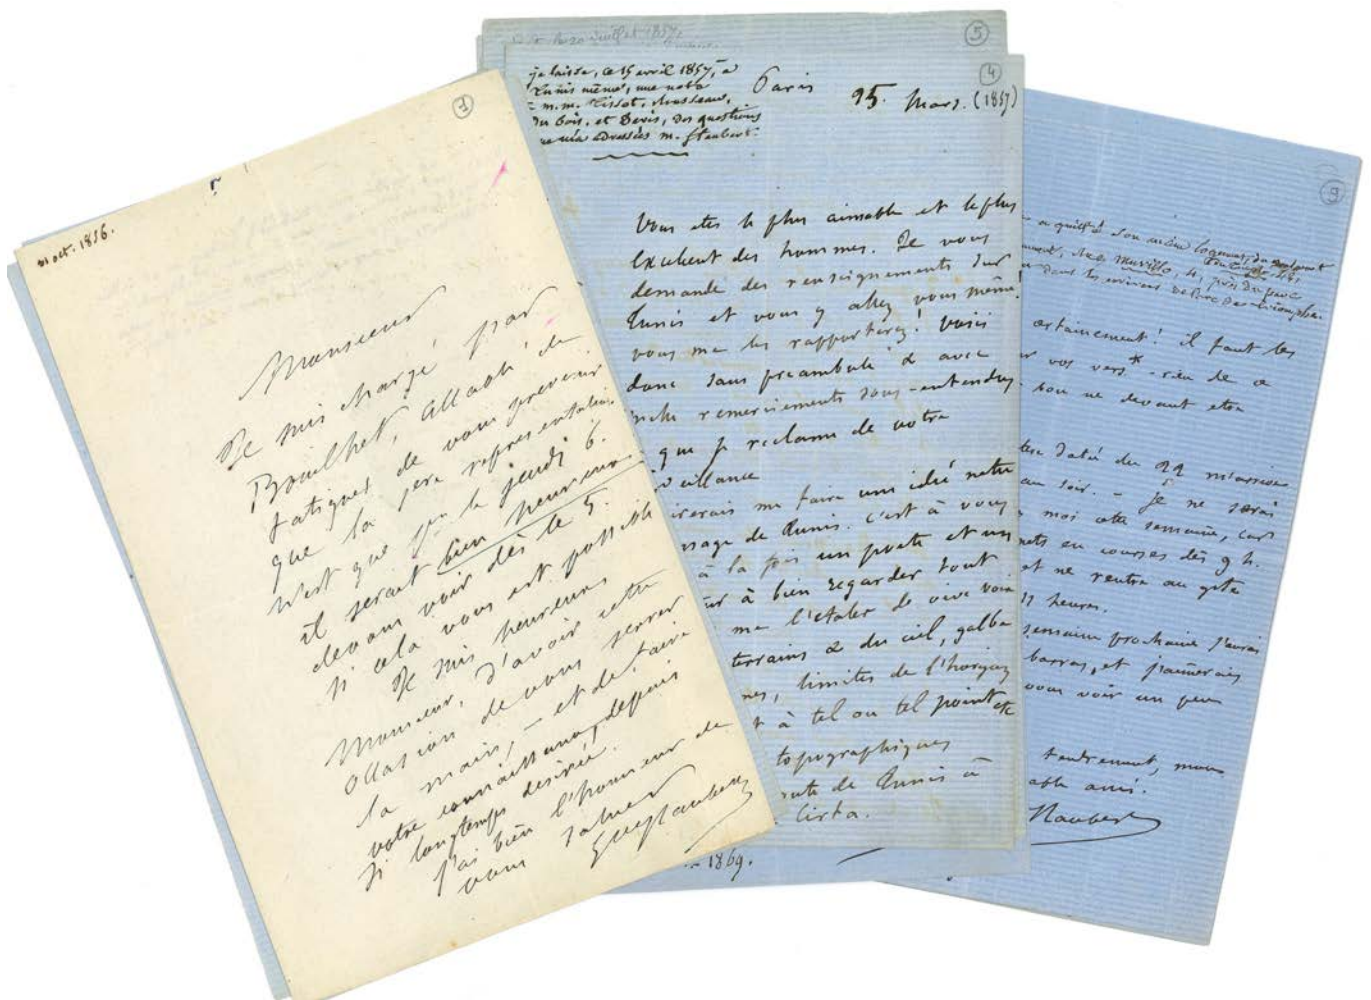 1
31 oct. 1856.
Monsieur
Je suis chargé par
Bouilhet, accablé de
fatigues de vous prevenir
que la 1ere représentation
n'est que pr le jeudi 6.
il serait bien heureux
devous voir dès le 5.
si cela vous est possible
Je suis heureux
Monsieur, d'avoir cette
occasion de vous serrer
la main, – et de faire
votre connaissance, depuis
si longtemps désirée.
J'ai bien l'honneur de
vous saluer
Gve Flaubert
5
20 juillet 1857
4
je laisse, ce 15 avril 1857, à
Tunis même, une note
à m.m. Tissot, Rousseau,
du bois, et Devis, des questions
que m'a adressées m. flaubert.
Paris 25. Mars. (1857)
Vous etes le plus aimable et le plus
excellent des hommes. Je vous
demande des renseignements sur
Tunis et vous y allez vous même.
vous me les rapporterez! voici
donc sans préambule & avec
mille remerciements sous-entendus
que je réclame de votre
veillance
irerais me faire une idée nette
sage de Tunis. c'est à vous
à la fois un poete et un
ur à bien regarder tout
me l'etaler de vive voix
terrains & du ciel, galbe
nes, limites de l'horizon
t à tel ou tel point etc
topographiques
oute de Tunis à
Cirta.
1869.
9
a quitté son même logement, du boulevard
rue murillo, 4, près du parc
dans les environs de l'arc de
ertainement! il faut les
ur vos vers* - rien de ce
bon ne devant etre
ttre datée du 22 m'arrive
au soir. – je ne serai
moi cette semaine, car
mets en courses dès 9 h.
et ne rentre au gîte
11 heures.
semaine prochaine j'aurai
barras, et j'aimerais
vous voir un peu
tendrement, mon
able ami.
Flaubert